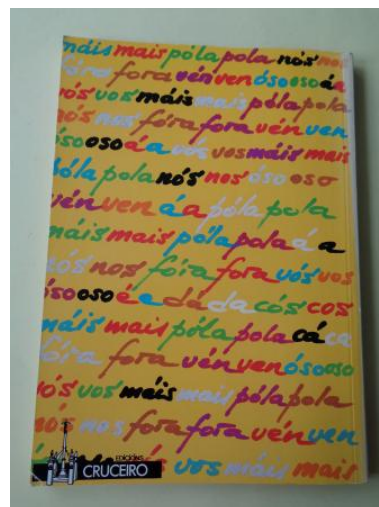 máis mais póla pola nós nos
fóra fora vén ven óso oso áa
vós vos máis mais póla pola
nós nos fóra fora vén ven
óso oso áa vós vos máis mais
póla pola nós nos óso oso
vén ven áa póla pola
máis mais póla pola á a
nós nos fóra fora vós vos
óso oso é e dá da cós cos
máis mais póla pola cá ca
fóra fora vén ven óso oso
vós vos mais mais póla pola
nós nos fora fora vén ven
vos máis mais
EDICIÓNS
CRUCEIRO